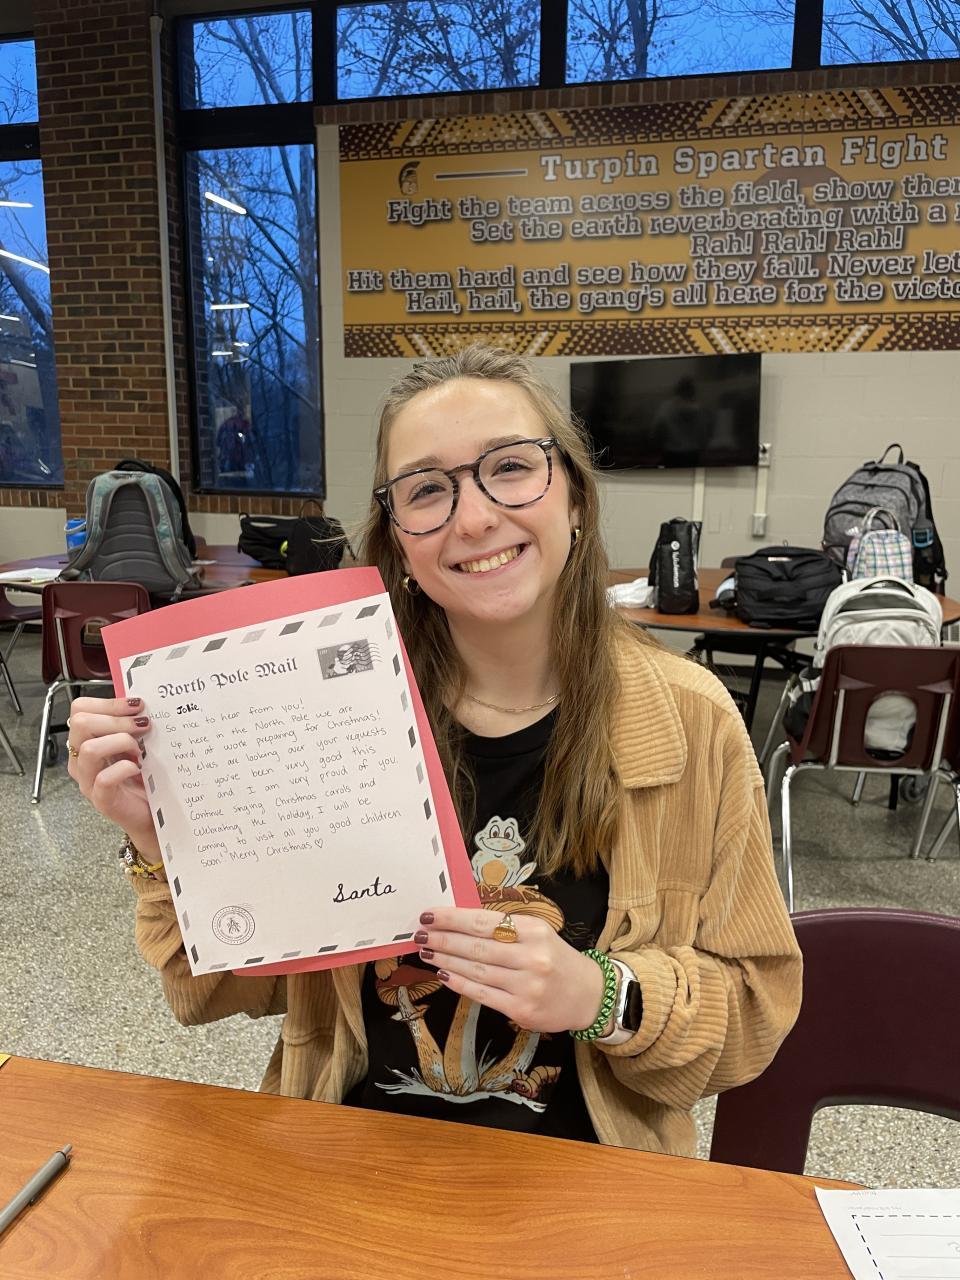 Turpin Spartan Fight
Fight the team across the field, show them
Set the earth reverberating with a
Rah! Rah! Rah!
Hit them hard and see how they fall. Never let
Hail, hail, the gang's all here for the victo
North Pole Mail
Hello Jolie,
So nice to hear from you!
Up here in the North Pole we are
hard at work preparing for Christmas!
My elves are looking over your requests
now... you've been very good this
year and I am very proud of you.
Continue singing Christmas carols and
celebrating the holiday, I will be
coming to visit all you good children
soon! Merry Christmas ♡
Santa
lululemon